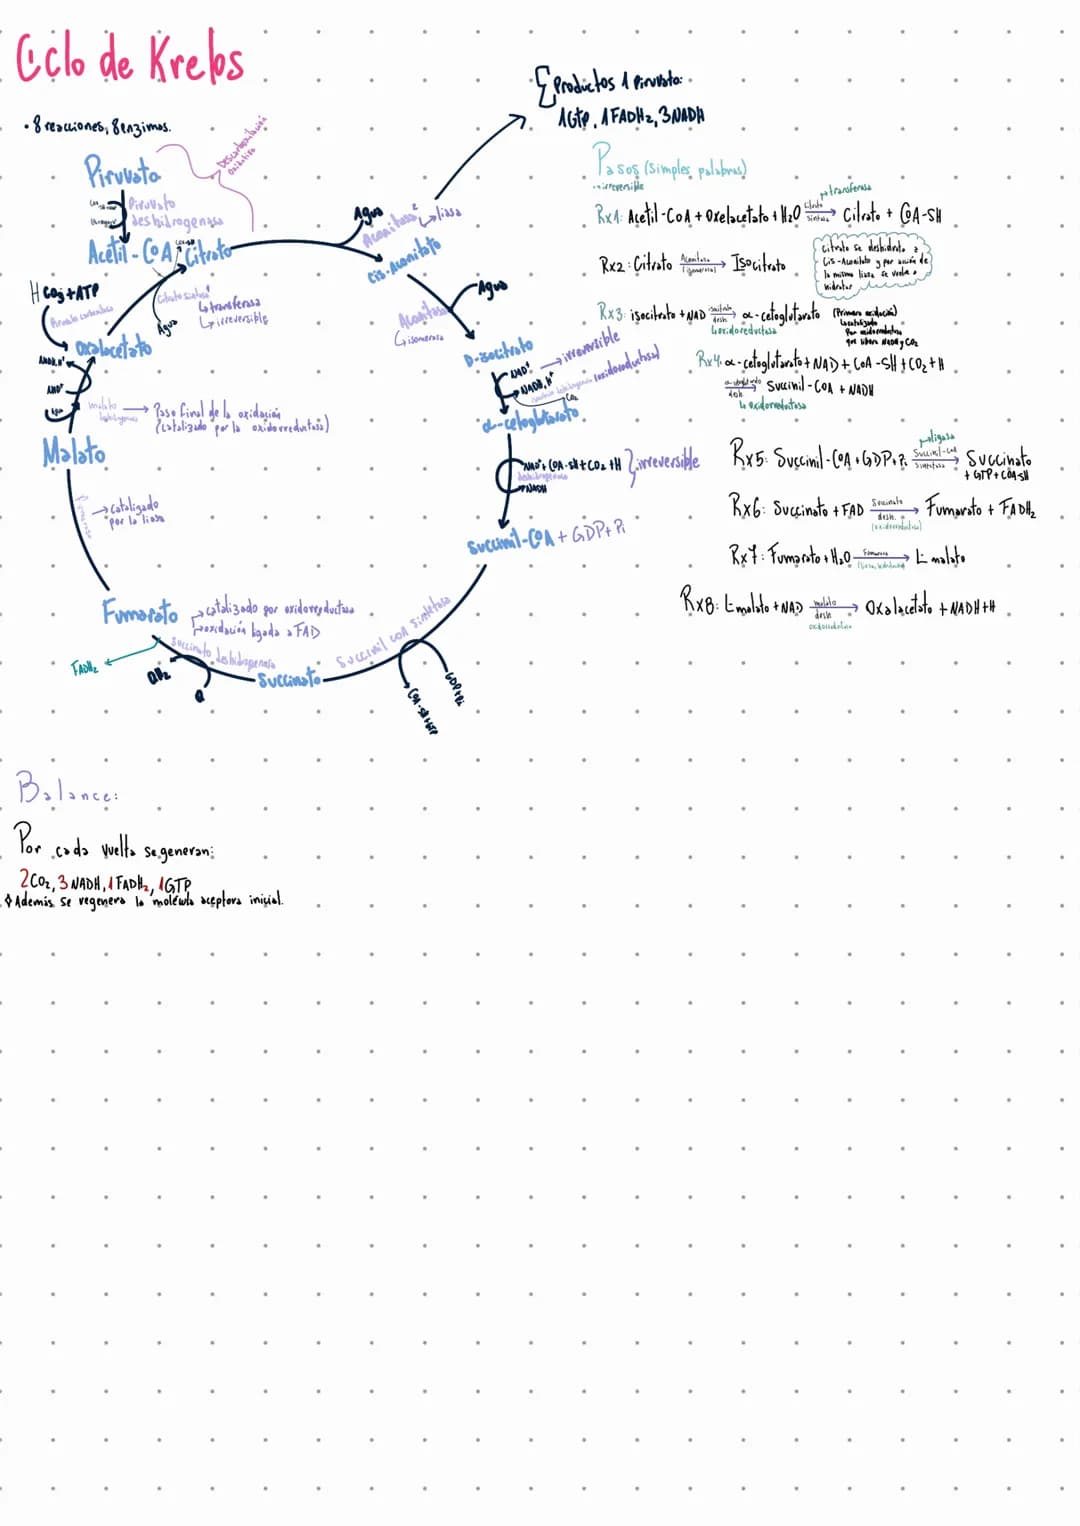 Ciclo de Krebs
• 8 reacciones, 8 enzimas.
Piruvato
Piruvato
deshidrogenasa
Descarboxilación
Oxidativa
Acetil-CoA
Citrato
Citrato sintasa
↳ transferasa
↳ irreversible
Agua
HCO3 + ATP
Piruvato carboxilasa
Oxalacetato
NADH, H+
NAD+
malato
deshidrogenasa
→ Paso final de la oxidación
(catalizado por la oxidorreductasa)
Malato
Fumarasa
→ catalizado
por la liasa
Fumarato
→ catalizado por oxidorreductasa
→ oxidación ligada a FAD
Succinato deshidrogenasa
FADH2
QH2
Q
Succinato
Succinil CoA sintetasa
CoA-SH+GTP
GDP+Pi
Succinil-CoA + GDP + Pi
NAD+ + CoA-SH + CO2 + H
deshidrogenasa
NADH
} irreversible
α-cetoglutarato
NAD+
NADH, H+
CO2
→ irreversible
(oxidoreductasa)
D-isocitrato
Agua
Aconitasa
↳ isomerasa
Cis-Aconitato
Agua
Aconitasa 2
↳ liasa
{ Productos 1 Piruvato:
1GTP, 1FADH2, 3NADH
Pasos (simples palabras)
irreversible
→ transferasa
Rx1: Acetil-CoA + Oxelacetato + H2O Citrato sintasa → Citrato + CoA-SH
Rx2: Citrato Aconitasa (isomerasa) → Isocitrato
Citrato se deshidrata a
Cis-Aconitato y por acción de
la misma liasa se vuelve a
hidratar
Rx3: isocitrato + NAD isocitrato desh → α-cetoglutarato (Primera oxidación)
↳ oxidoreductasa
Catalizado
por oxidorreductasa
que libera NADH y CO2
Rx4: α-cetoglutarato + NAD + CoA-SH + CO2 + H
α-cetoglutarato desh. → Succinil-CoA + NADH
↳ oxidorreductasa
→ ligasa
Rx5: Succinil-CoA + GDP + Pi Succinil-CoA sintetasa → Succinato
+ GTP + CoA-SH
Rx6: Succinato + FAD Succinato desh. → Fumarato + FADH2
(oxidoreductasa)
Rx7: Fumarato + H2O Fumarasa → L-malato
(liasa, hidratasa)
Rx8: L-malato + NAD malato desh → Oxalacetato + NADH + H
oxidoreductasa
Balance:
Por cada vuelta se generan:
2CO2, 3 NADH, 1 FADH2, 1GTP
Además se regenera la molécula aceptora inicial.